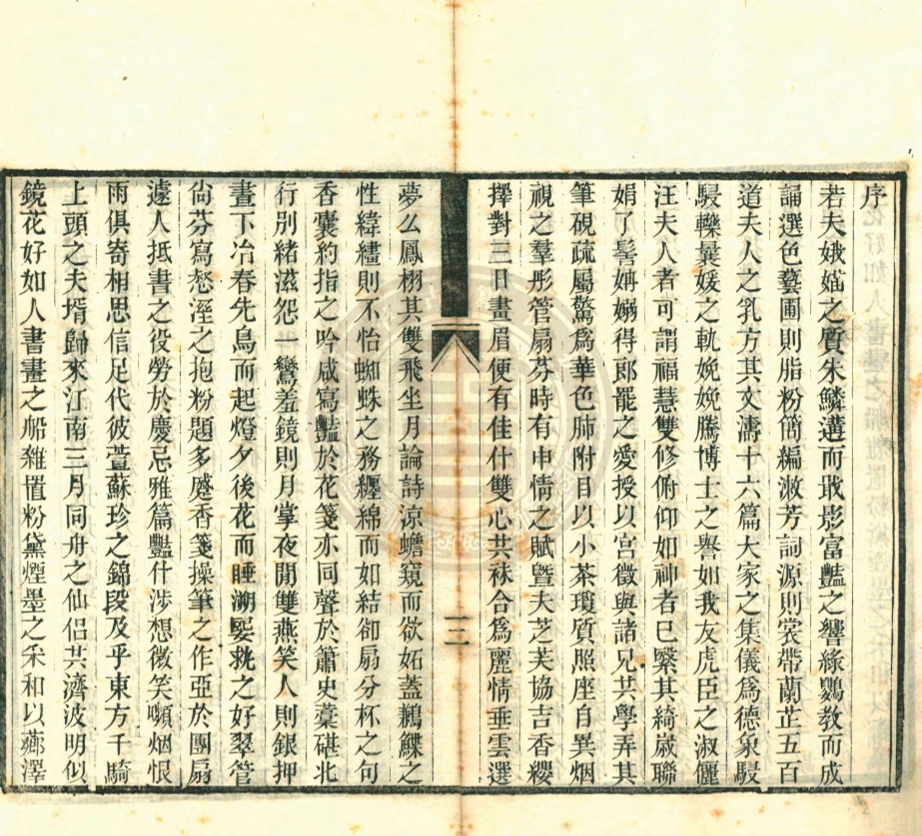 序
若夫娥媌之質朱鱗遘而戢影富豔之響綠鸚教而成
誦選色藝圃則脂粉簡編漱芳詞源則裳帶蘭芷五百
道夫人之乳方其文濤十六篇大家之集儀為德象駸
駸轢曩媛之軌娩娩騰博士之譽如我友虎臣之淑儷
汪夫人者可謂福慧雙修俯仰如神者巳緊其綺歲聯
娟了髻姌嫋得郎罷之愛授以宮徵與諸兄共學弄其
筆硯疏屬驚為華色肺附目以小茶瓊質照座自異烟
視之羣彤管扇芬時有申情之賦暨夫芝芙協吉香纓
擇對三日畫眉便有佳什雙心共袜合為麗情垂雲選
夢么鳳栩其雙飛坐月論詩涼蟾窺而欲妬蓋鶼鰈之
性緯繣則不怡蜘蛛之務纏綿而如結卻扇分杯之句
香囊約指之吟咸寫豔於花箋亦同聲於簫史藁碪北
行別緒滋怨一鸞羞鏡則月掌夜閒雙燕笑人則銀押
晝下冶春先鳥而起燈夕後花而睡溯翣銚之好翠管
尙芬寫愁溼之抱粉題多蹙香箋操筆之作亞於團扇
遽人抵書之役勞於慶忌雅篇豔什涉想微笑嚬烟恨
雨俱寄相思信足代彼萱蘇珍之錦段及乎東方千騎
上頭之夫壻歸來江南三月同舟之仙侶共濟波明似
鏡花好如人書畫之船雜置粉黛煙墨之采和以薌澤
三